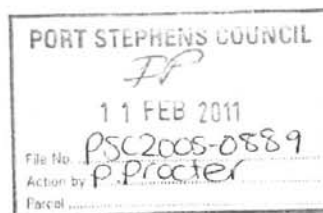 PORT STEPHENS COUNCIL
11 FEB 2011
File No. PSC2005-0889
Action by P Procter
Parcel